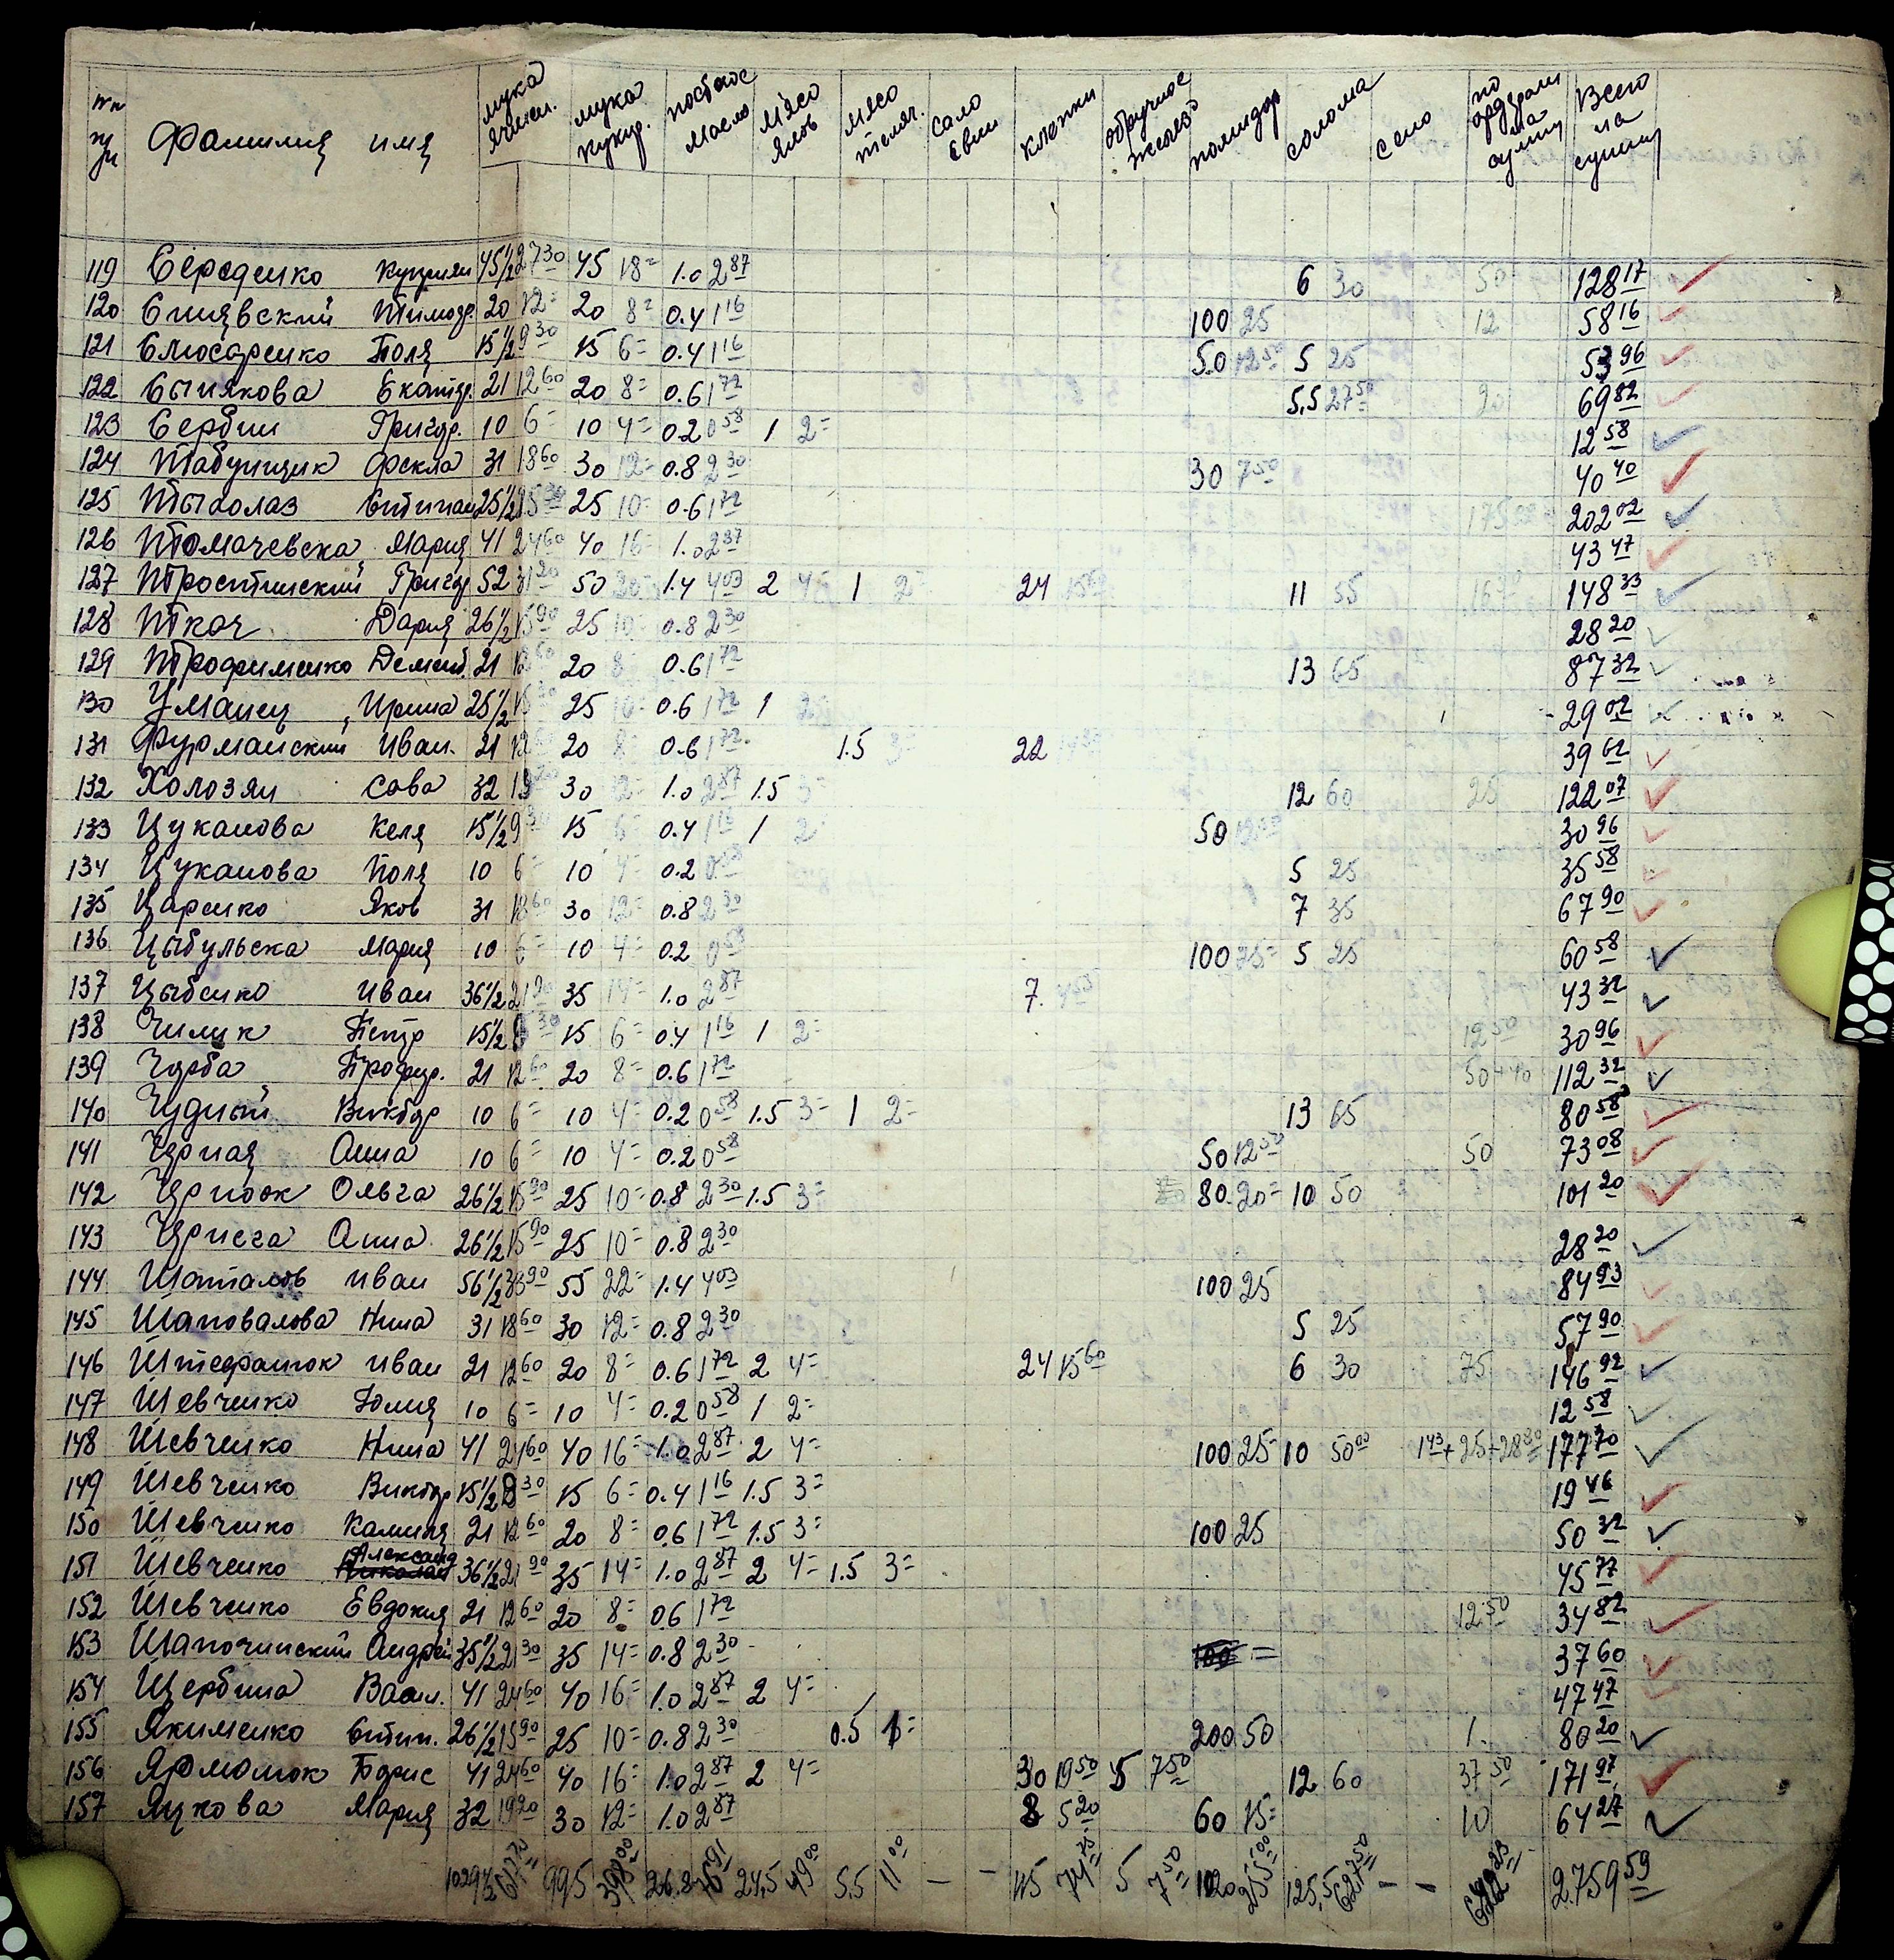 №№ п/п Фамилия имя мука ячмен. мука кукур. постное масло мясо ялов мясо телят. сало свин клепки обручное железо помидор солома сено по ордерам на сумму Всего на сумму
119 Середенко 45½ 27 30 45 18= 1.0 2 87 6 30 50 128 17
120 Синявский Тимоф. 20 12= 20 8= 0.4 1 16 100 25 12 58 16
121 Слюсаренко Поля 15½ 9 30 15 6= 0.4 1 16 50 12 50 5 25 53 96
122 Сытякова Екатер. 21 12 60 20 8= 0.6 1 72 5,5 27 50 20 69 82
123 Сербин Григор. 10 6= 10 4= 0.2 0 58 1 2= 12 58
124 Табунщик Фекла 31 18 60 30 12= 0.8 2 30 30 7 50 40 40
125 Тыхолаз Степан 25½ 15 30 25 10= 0.6 1 72 202 02
126 Томачевска Мария 41 24 60 40 16= 1.0 2 87 43 47
127 Тростинский Григор 52 31 20 50 20= 1.4 4 03 2 4= 1 2= 24 15 60 11 55 148 33
128 Ткач Дария 26½ 15 90 25 10= 0.8 2 30 28 20
129 Трофименко 21 12 60 20 8= 0.6 1 72 13 65 87 32
130 Уманец Ирина 25½ 15 30 25 10= 0.6 1 72 1 2= 29 02
131 Фурманский Иван. 21 12 60 20 8= 0.6 1 72 1.5 3= 22 14 30 39 62
132 Холозян Сава 32 19 20 30 12= 1.0 2 87 1.5 3= 12 60 25 122 07
133 Цуканова Келя 15½ 9 30 15 6= 0.4 1 16 1 2= 50 12 50 30 96
134 Цуканова Поля 10 6= 10 4= 0.2 0 58 5 25 35 58
135 Царенко Яков 31 18 60 30 12= 0.8 2 30 7 35 67 90
136 Цыбульска Мария 10 6= 10 4= 0.2 0 58 100 25= 5 25 60 58
137 Цыбенко Иван 36½ 21 90 35 14= 1.0 2 87 7. 4 55 43 32
138 Чилик Петр 15½ 9 30 15 6= 0.4 1 16 1 2= 12 50 30 96
139 Чорба Профир. 21 12 60 20 8= 0.6 1 72 50+40 112 32
140 Чудный Виктор 10 6= 10 4= 0.2 0 58 1.5 3= 1 2= 13 65 80 58
141 Черная Анна 10 6= 10 4= 0.2 0 58 50 12 50 50 73 08
142 Ольга 26½ 15 90 25 10= 0.8 2 30 1.5 3= 80 20= 10 50 101 20
143 Анна 26½ 15 90 25 10= 0.8 2 30 28 20
144 Шаталов Иван 56½ 33 90 55 22= 1.4 4 03 100 25 84 93
145 Шаповалова Нина 31 18 60 30 12= 0.8 2 30 5 25 57 90
146 Штефанюк Иван 21 12 60 20 8= 0.6 1 72 2 4= 24 15 60 6 30 75 146 92
147 Шевченко Юлия 10 6= 10 4= 0.2 0 58 1 2= 12 58
148 Шевченко Нина 41 24 60 40 16= 1.0 2 87 2 4= 100 25= 10 50 00 1 43+25+28 80 177 70
149 Шевченко Виктор 15½ 9 30 15 6= 0.4 1 16 1.5 3= 19 46
150 Шевченко 21 12 60 20 8= 0.6 1 72 1.5 3= 100 25 50 32
151 Шевченко Александ 36½ 21 90 35 14= 1.0 2 87 2 4= 1.5 3= 45 77
152 Шевченко Евдокия 21 12 60 20 8= 0.6 1 72 12 50 34 82
153 Шапочинский Андрей 35½ 21 30 35 14= 0.8 2 30 100 = 37 60
154 Щербина Васил. 41 24 60 40 16= 1.0 2 87 2 4= 47 47
155 Якименко Степ. 26½ 15 90 25 10= 0.8 2 30 0.5 1= 200 50 1. 80 20
156 Ярмолюк Борис 41 24 60 40 16= 1.0 2 87 2 4= 30 19 50 5 7 50 12 60 37 50 171 97
157 Яцкова Мария 32 19 20 30 12= 1.0 2 87 8 5 20 60 15= 10 64 27
1029½ 617 70 995 398 00 26.8 76 91 24,5 49 00 5,5 11 00 — — 5 7 50 1020 255 00 125,5 627 50 — — 2.759 59